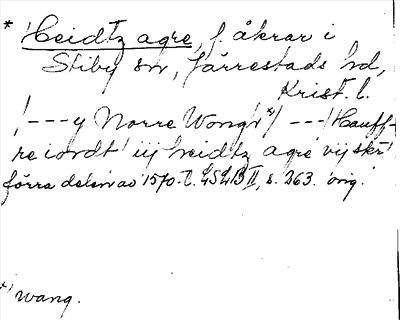 * Heidtz agre, f. åkrar i
Stiby sn, Järrestads hd,
Krist. l.
/---y Norre Wongh*)/ ---/Hauff-
re iordt iij heidtz agre vij skr
förra delen av 1570-t. LSLB II, s. 263. orig.
*) wang.